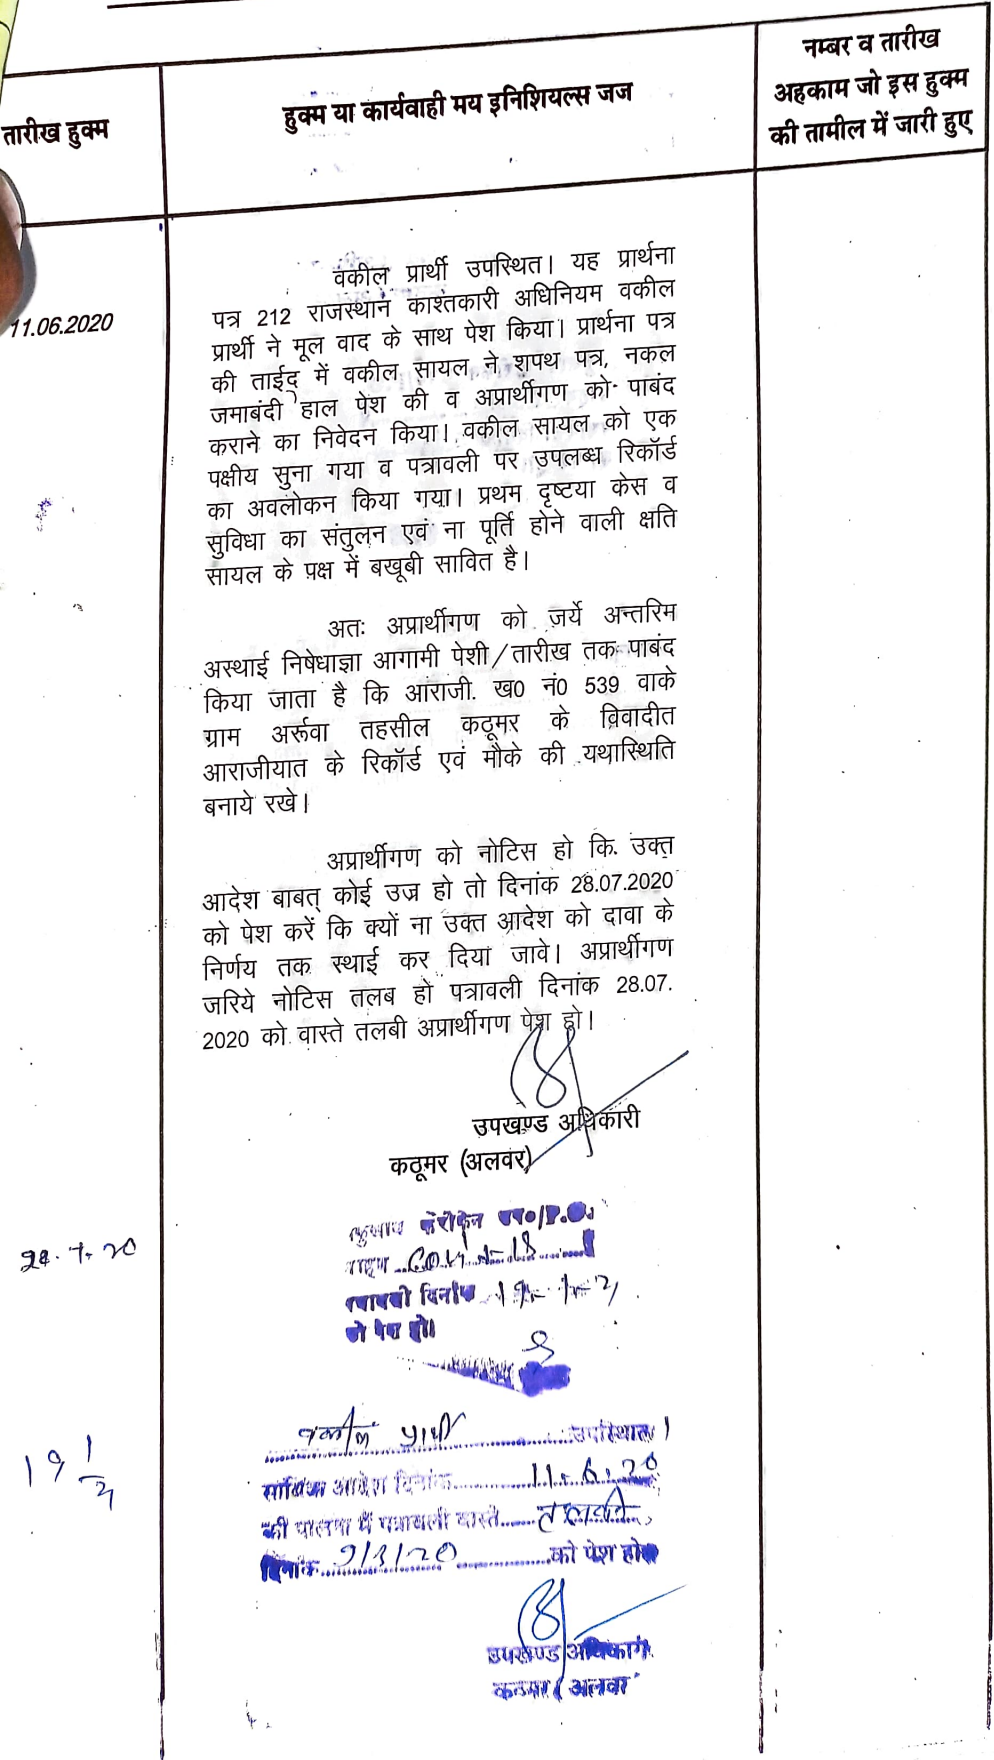 तारीख हुक्म
हुक्म या कार्यवाही मय इनिशियल्स जज
नम्बर व तारीख
अहकाम जो इस हुक्म
की तामील में जारी हुए
11.06.2020
वकील प्रार्थी उपस्थित। यह प्रार्थना
पत्र 212 राजस्थान काश्तकारी अधिनियम वकील
प्रार्थी ने मूल वाद के साथ पेश किया। प्रार्थना पत्र
की ताईद में वकील सायल ने शपथ पत्र, नकल
जमाबंदी हाल पेश की व अप्रार्थीगण को पाबंद
कराने का निवेदन किया। वकील सायल को एक
पक्षीय सुना गया व पत्रावली पर उपलब्ध रिकॉर्ड
का अवलोकन किया गया। प्रथम दृष्टया केस व
सुविधा का संतुलन एवं ना पूर्ति होने वाली क्षति
सायल के पक्ष में बखूबी सावित है।
अतः अप्रार्थीगण को जर्ये अन्तरिम
अस्थाई निषेधाज्ञा आगामी पेशी/तारीख तक पाबंद
किया जाता है कि आराजी. ख0 नं0 539 वाके
ग्राम अरूंवा तहसील कठूमर के विवादीत
आराजीयात के रिकॉर्ड एवं मौके की यथास्थिति
बनाये रखे।
अप्रार्थीगण को नोटिस हो कि उक्त
आदेश बाबत् कोई उज्र हो तो दिनांक 28.07.2020
को पेश करें कि क्यों ना उक्त आदेश को दावा के
निर्णय तक स्थाई कर दिया जावे। अप्रार्थीगण
जरिये नोटिस तलब हो पत्रावली दिनांक 28.07.
2020 को वास्ते तलबी अप्रार्थीगण पेश हो।
उपखण्ड अधिकारी
कठूमर (अलवर)
दिनांक
को पेश हो।
वकील प्रार्थी उपस्थित।
आदेश दिनांक 11.6.20
की पालना में पत्रावली वास्ते तलबी
दिनांक को पेश हो
उपखण्ड अधिकारी